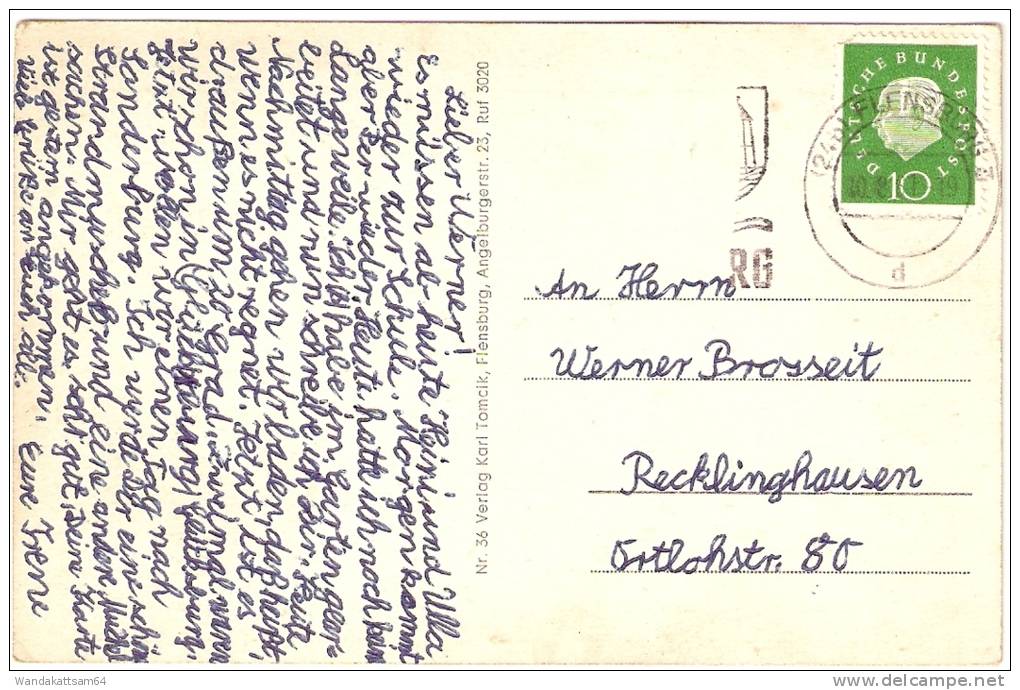 Lieber Werner!
Es müssen ab heute Heini und Ulla
wieder zur Schule. Morgen kommt
aber Der wieder. Heute hatte ich noch kein
Langeweile. Ich habe im Garten gear-
beitet und nun schreibe ich Dir. Heute
Nachmittag gehen wir baden, daß heißt,
wenn es nicht regnet. Jetzt ist es
draußen um 20 Grad. Zweimal waren
wir schon in Glücksburg
Jetzt wollen wir einen Tag nach
Sonderburg. Ich werde dir eine schön
Strandmuschel und eine andere
suchen. Mir geht es sehr gut. Deine Karte
ist gestern angekommen. Eure Irene
Viele Grüße an Euch alle.
Nr. 36 Verlag Karl Tomcik, Flensburg, Angelburgerstr. 23, Ruf 3020
DEUTSCHE BUNDESPOST
10
(24b) FLENSBURG
d
RG
An Herrn
Werner Brosseit
Recklinghausen
Ortlohstr. 80
Wandakattsam64
delcampe.net